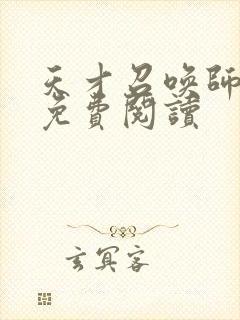 天才召喚師
免費閱讀
玄冥客